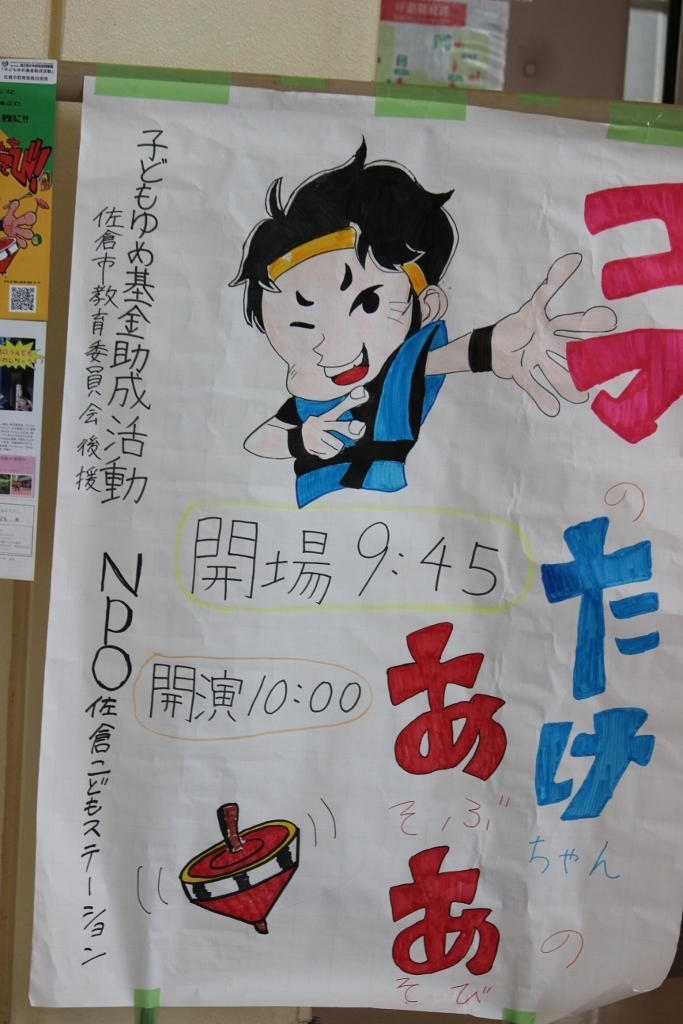 コマ
の
たけ
ちゃん
の
あ
そぶ
あ
そび
開場 9:45
開演 10:00
子どもゆめ基金助成活動
佐倉市教育委員会後援
NPO佐倉こどもステーション